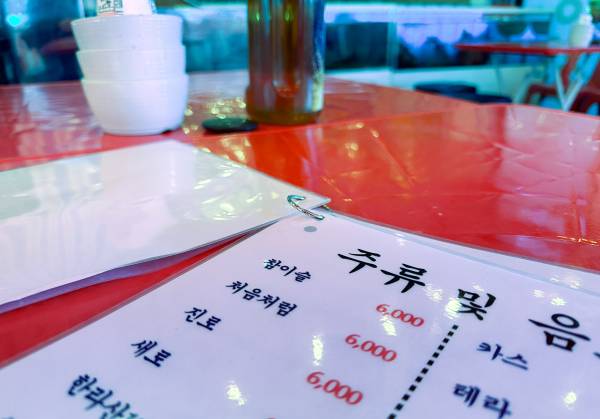 주류 및 음
참이슬
처음처럼 6,000
진로 6,000
새로 6,000
한라산
카스
테라